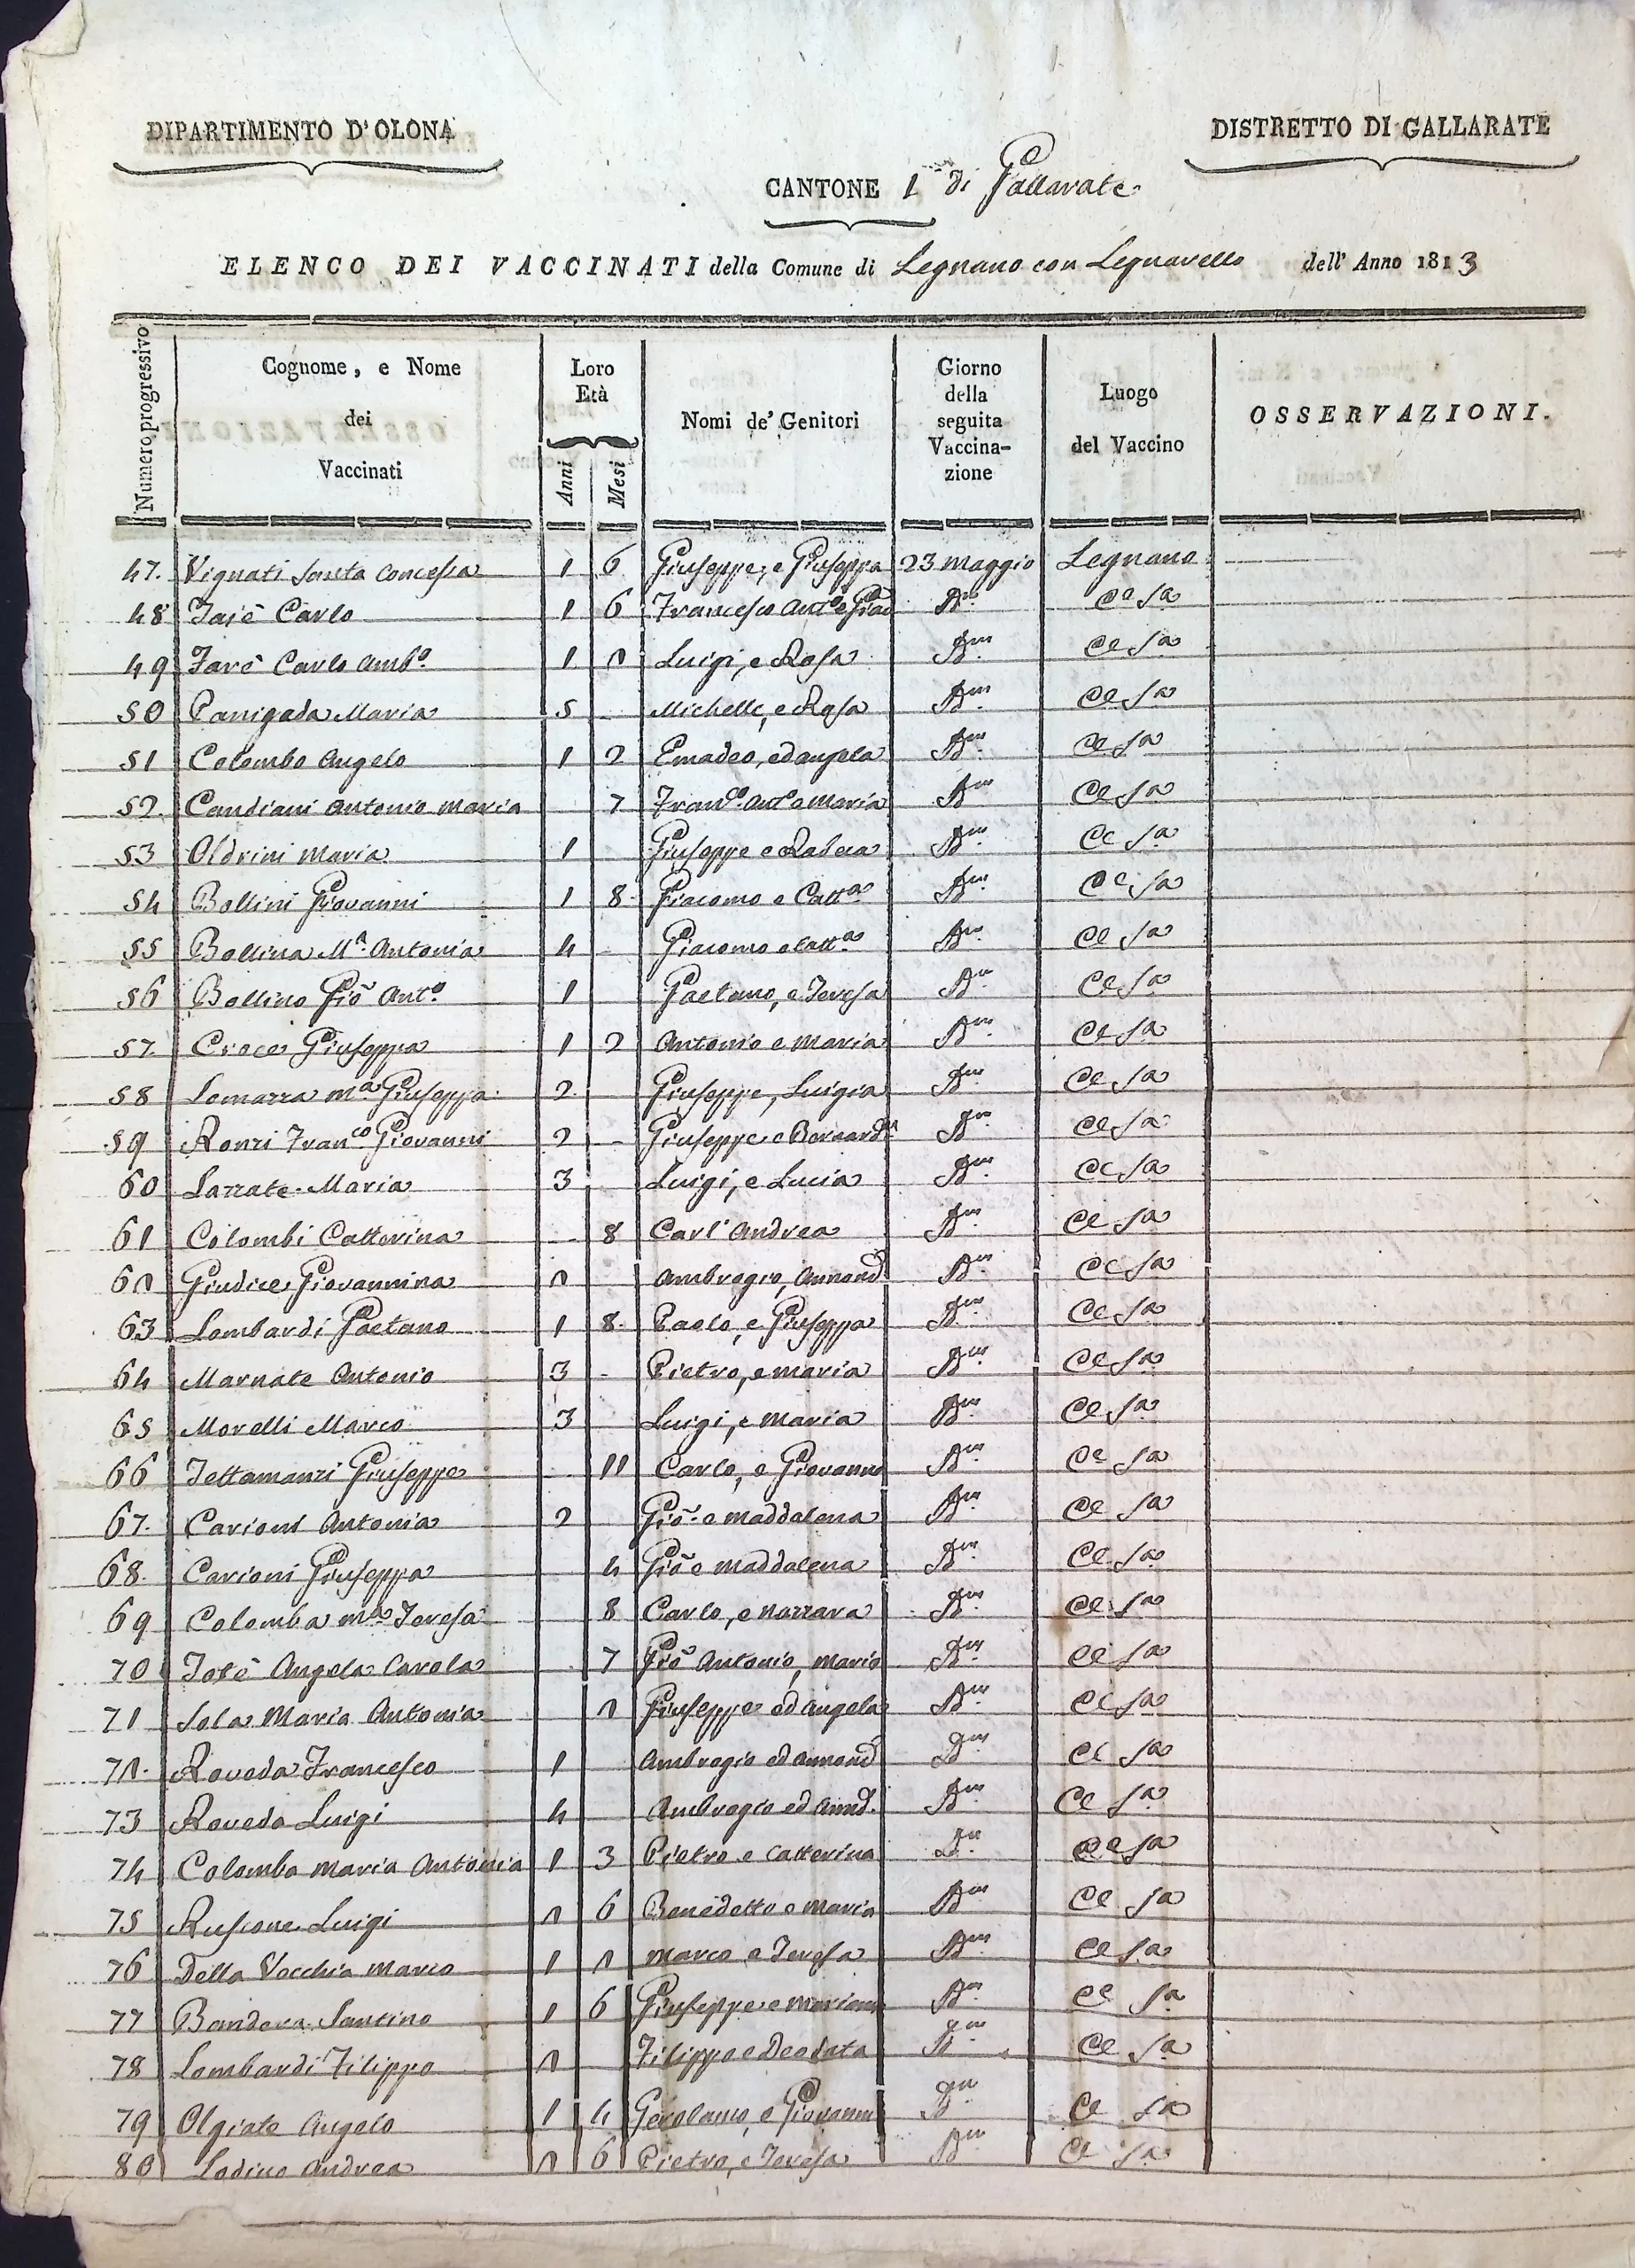 DIPARTIMENTO D'OLONA
DISTRETTO DI GALLARATE
CANTONE 1º di Gallarate
ELENCO DEI VACCINATI della Comune di Legnano con Legnarello dell' Anno 1813
Numero progressivo
Cognome, e Nome dei Vaccinati
Loro Età
Anni
Mesi
Nomi de' Genitori
Giorno della seguita Vaccina-zione
Luogo del Vaccino
OSSERVAZIONI.
47. Vignati Santa Concessa 1 6 Giuseppe, e Giuseppa 23 Maggio Legnano
48 Carlo 1 6 Francesco Antº e Dm Ce Sa
49 Farè Carlo Ambº. 1 2 Luigi, e Rosa Dm Ce Sa
50 Panigada Maria 5 - Michelle, e Rosa Dm Ce Sa
51 Colombo Angelo 1 2 Emadeo, ed Angela Dm Ce Sa
52. Candiani Antonio Maria 7 Francº. Antº e Maria Dm Ce Sa
53 Oldrini Maria 1 Giuseppe e Dm Ce Sa
54 Bollini Giovanni 1 8 Giacomo e Catta Dm Ce Sa
55 Bollina Mª Antonia 4 - Giacomo e Catta Dm Ce Sa
56 Bollino Giō Antº. 1 Gaetano, e Teresa Dm Ce Sa
57. Croce Giuseppa 1 2 Antonio e Maria Dm Ce Sa
58 Lomazza Mª Giuseppa 2. Giuseppe, Luigia Dm Ce Sa
59 Ronzi Francº Giovanni 2 - Giuseppe e Bernardª Dm Ce Sa
60 Lazzate Maria 3 Luigi, e Lucia Dm Ce Sa
61 Colombi Catterina - 8 Carl' Andrea Dm Ce Sa
62 Giudice Giovannina 2 Ambrogio, Annond Dm Ce Sa
63 Lombardi Gaetano 1 8. Paolo, e Giuseppa Dm Ce Sa
64 Marnate Antonio 3 - Pietro, e Maria Dm Ce Sa
65 Morelli Marco 3 Luigi, e Maria Dm Ce Sa
66 Tettamanzi Giuseppe 11 Carlo, e Giovann Dm Ce Sa
67. Carioni Antonia 2 Giō e Maddalena Dm Ce Sa
68. Carioni Giuseppa 4 Giō e Maddalena Dm Ce Sa
69 Colomba Mª Teresa 8 Carlo, e Nazzara Dm Ce Sa
70 Angela Carola 7 Giō Antonio, Maria Dm Ce Sa
71 Sola Maria Antonia 2 Giuseppe ed Angela Dm Ce Sa
72. Roveda Francesco 1 Ambrogio ed Annond Dm Ce Sa
73 Roveda Luigi 4 Ambrogio ed Annd. Dm Ce Sa
74 Colombo Maria Antonia 1 3 Pietro e Catterina Dm Ce Sa
75 Ruscone Luigi 2 6 Benedetto e Maria Dm Ce Sa
76 Della Vecchia Marco 1 2 Marco e Teresa Dm Ce Sa
77 Bandera Santino 1 6 Giuseppe e Mariana Dm Ce Sa
78 Lombardi Filippo 2 Filippo e Deodata Dm Ce Sa
79 Olgiate Angelo 1 4 Gerolamo, e Giovann Dm Ce Sa
80 Lodino Andrea 2 6 Pietro, e Teresa Dm Ce Sa